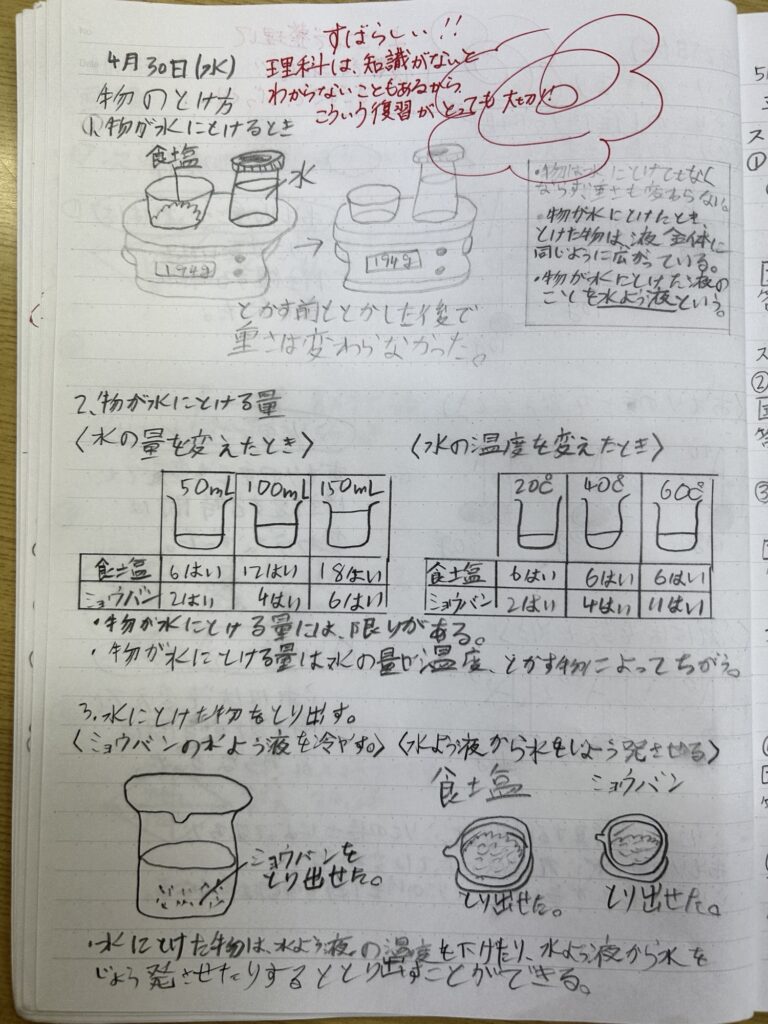 4月30日(水)
すばらしい!!
理科は、知識がないと
わからないこともあるから、
こういう復習がとっても大切!!
物のとけ方
1.物が水にとけるとき
食土塩
水
194g
→
194g
とかす前ととかした後で
重さは変わらなかった。
・物は水にとけてもなく
ならず、重さも変わらない。
・物が水にとけたとき、
とけた物は、液全体に
同じように広がっている。
・物が水にとけた液の
ことを水よう液という。
2、物が水にとける量
〈水の量を変えたとき〉
50mL 100mL 150mL
食土塩 6はい 12はい 18はい
ミョウバン 2はい 4はい 6はい
〈水の温度を変えたとき〉
20℃ 40℃ 60℃
食土塩 6はい 6はい 6はい
ミョウバン 2はい 4はい 11はい
・物が水にとける量には、限りがある。
・物が水にとける量は水の量や温度、とかす物によってちがう。
3.水にとけた物をとり出す。
〈ミョウバンの水よう液を冷やす。〉
ミョウバンを
とり出せた。
〈水よう液から水をじょう発させる〉
食土塩 ミョウバン
とり出せた。 とり出せた。
・水にとけた物は、水よう液の温度を下げたり、水よう液から水を
じょう発させたりするととり出すことができる。